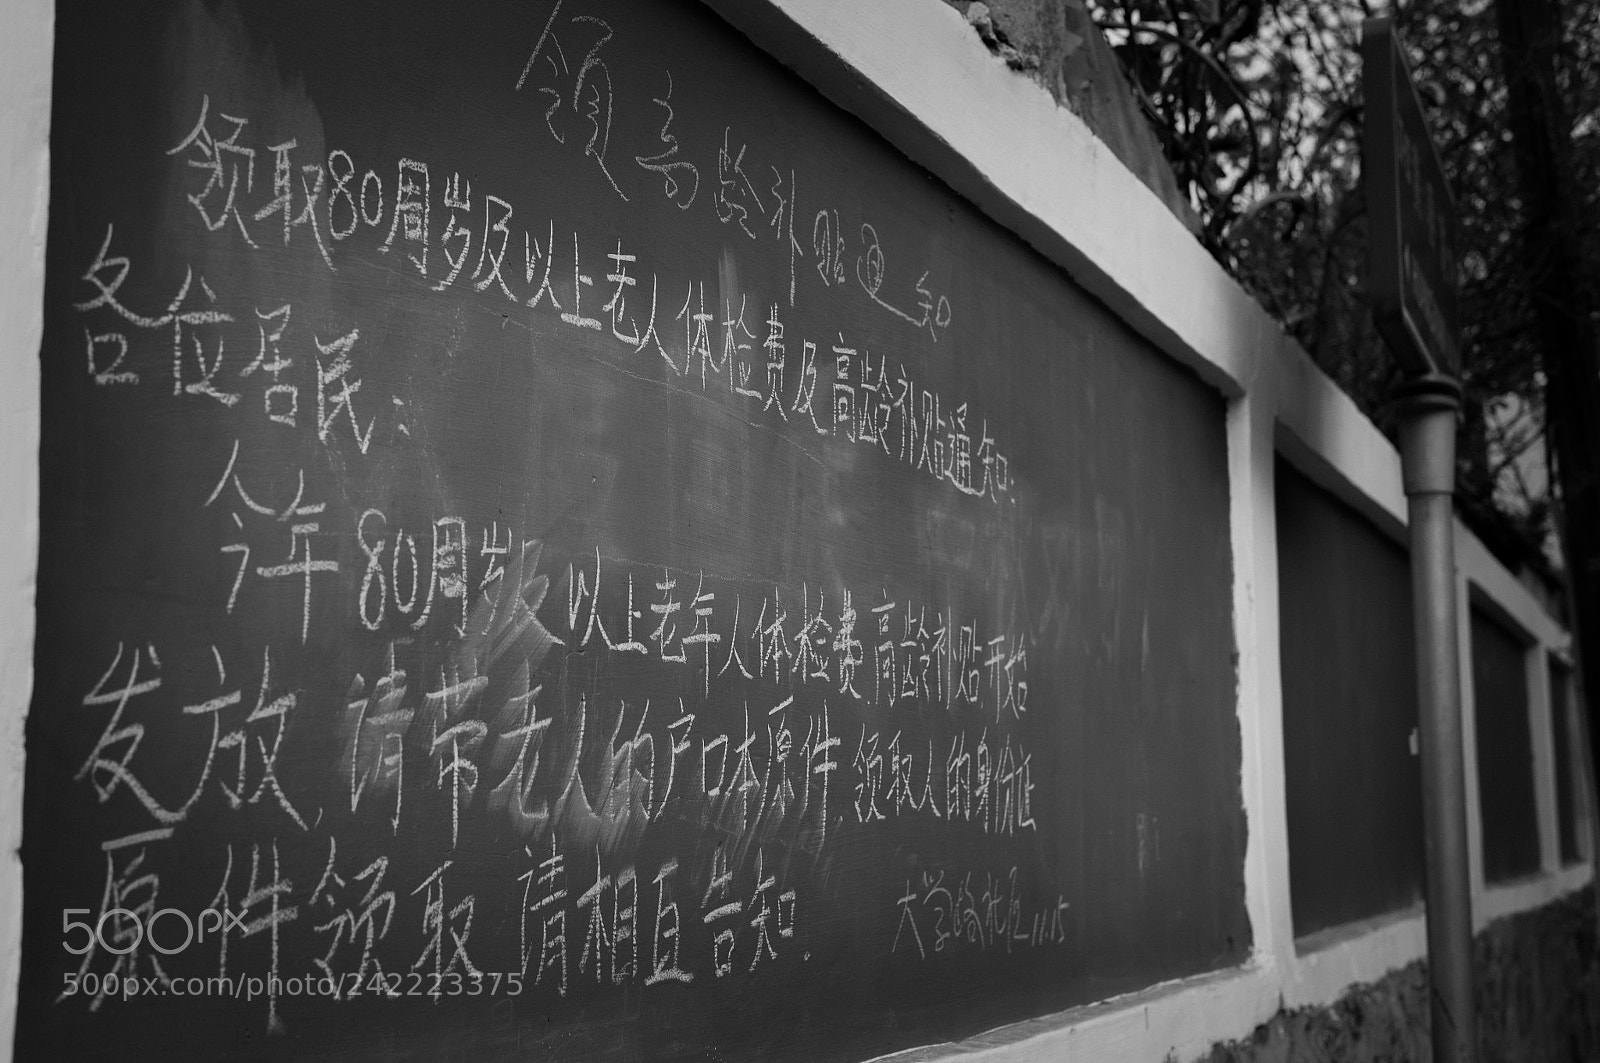 领高龄补贴通知
领取80周岁及以上老人体检费及高龄补贴通知:
各位居民:
今年80周岁以上老年人体检费高龄补贴开始
发放,请带老人的户口本原件.领取人的身份证
原件领取.请相互告知.
大学路社区11.15
500px
500px.com/photo/242223375